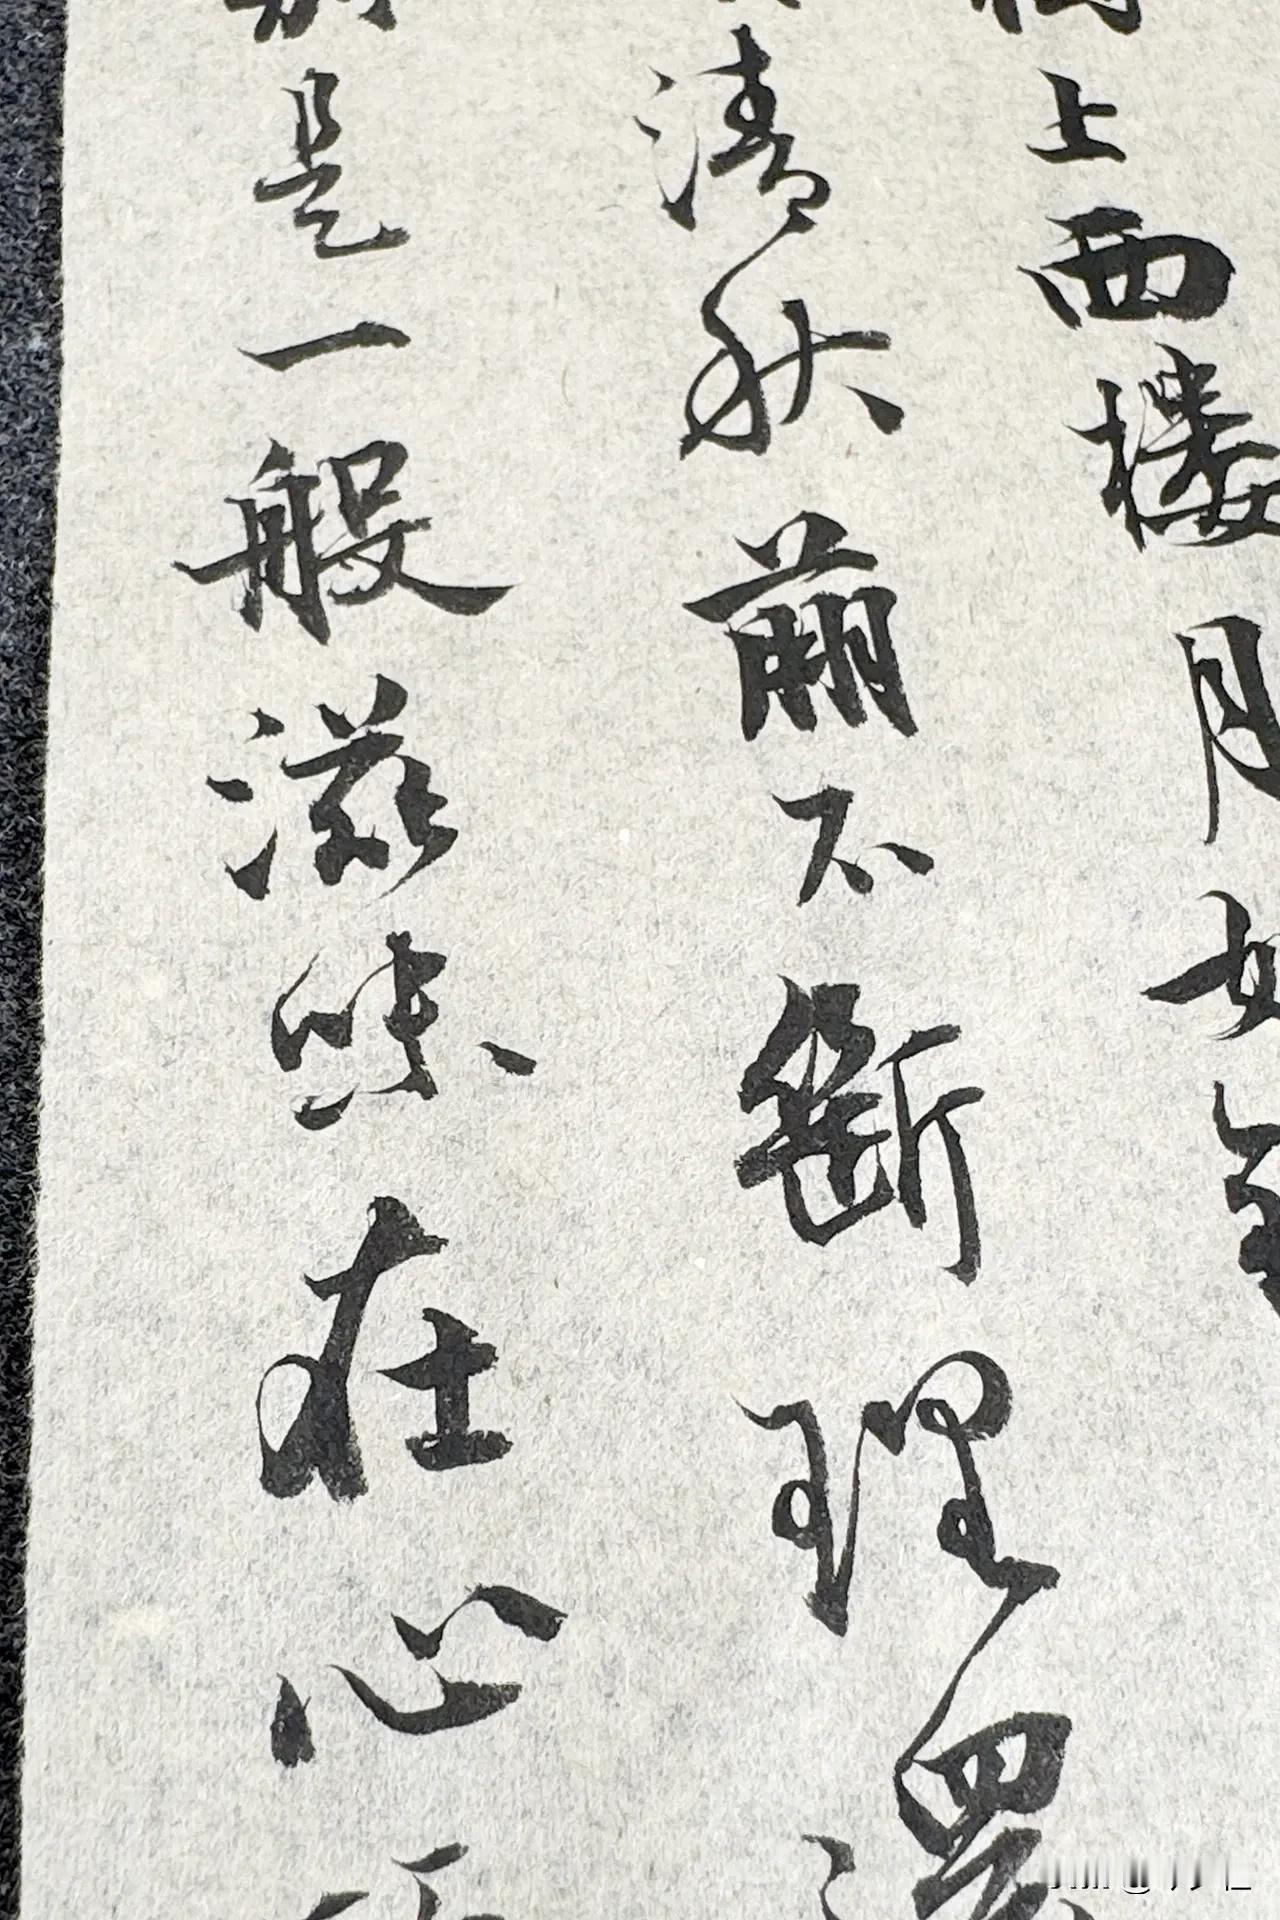 上西楼月如
清秋翦不斷理還
是一般滋味在心